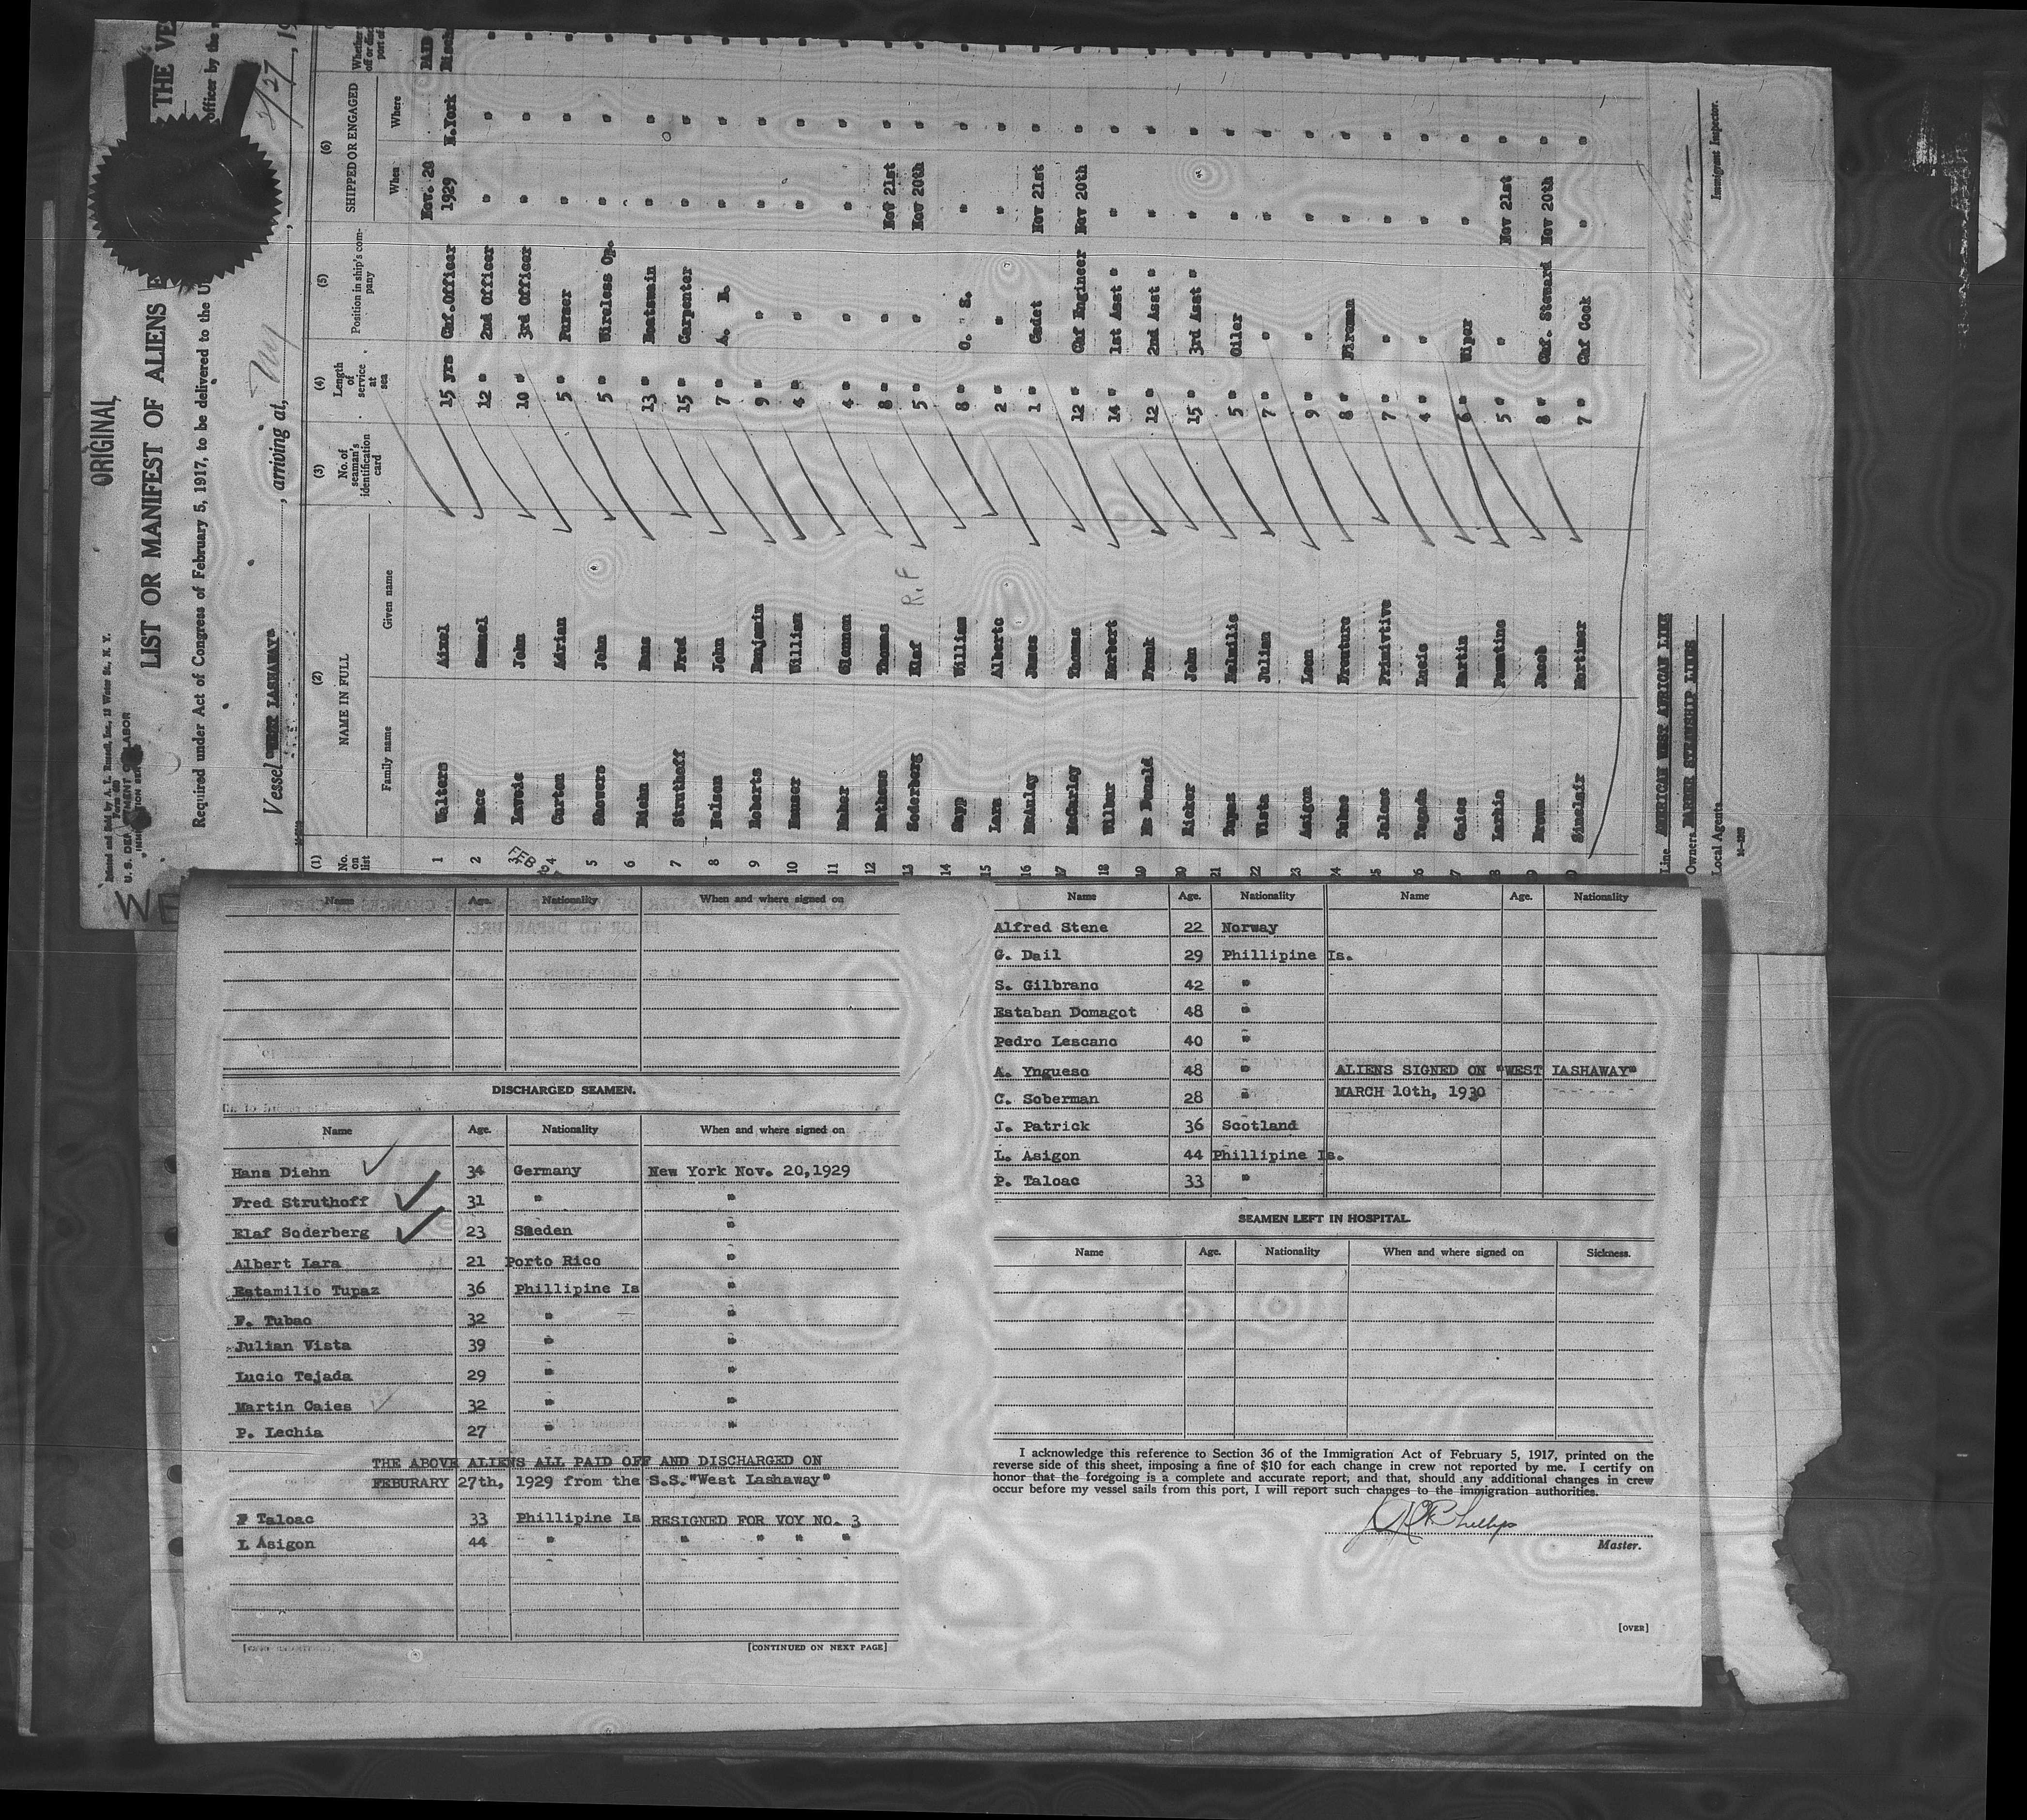 ORIGINAL
Printed and Sold by A. L. Russell, Inc., 15 Water St., N. Y.
Form 680
U. S. DEPARTMENT OF LABOR
LIST OR MANIFEST OF ALIENS E THE VE
Required under Act of Congress of February 5, 1917, to be delivered to the U officer by the
Vessel "WEST LASHAWAY" , arriving at, N Y 2/27 , 19
(1) (2) (3) (4) (5) (6)
No. on list NAME IN FULL No. of seaman's identification card Length of service at sea Position in ship's company SHIPPED OR ENGAGED
Family name Given name When Where
1 Walters 15 yrs Chf.Officer Nov. 20 1929 N.York PAID
2 Mace Samuel 12 " 2nd Officer " " "
3 Lavoie John 10 " 3rd Officer " " "
4 Curten Adrian 5 " Purser " " "
5 Showers John 5 " Wireless Op. " " "
6 Diehn Hans 13 " Boatswain " " "
7 Struthoff Fred 15 " Carpenter " " "
8 Nelsen John 7 " A. B. " " "
9 Roberts Benjamin 9 " " " " "
10 William 4 " " " "
11 Glennon 4 " " " " "
12 Mathews Thomas 8 " " Nov 21st " "
13 Soderberg Elaf R.F 5 " " Nov 20th " "
14 William 8 " O. S. " " "
15 Lara Alberto 2 " " " " "
16 McAuley James 1 " Cadet Nov 21st " "
17 McCarley Thomas 12 " Chf Engineer Nov 20th " "
18 Wilbur Herbert 14 " 1st Asst " " " "
19 Mc Donald Frank 12 " 2nd Asst " " " "
20 Ricker John 15 " 3rd Asst " " " "
21 Tupaz 5 " Oiler " " "
22 Vista Julian 7 " " " " "
23 Asigon Leon 9 " " " " "
24 Tubao 8 " Fireman " " "
25 Primivtive 7 " " " " "
26 Tegada Lucio 4 " " " " "
27 Caies Martin 6 " Wiper " " "
28 Faustino 5 " " Nov 21st " "
Jacob 8 " Chf. Steward Nov 20th " "
Sinclair Mortimer 7 " Chf Cook " " "
Line AMERICAN WEST AFRICAN LINE
Owners BARBER STEAMSHIP LINES
Local Agents
Immigrant Inspector.
Name Age. Nationality When and where signed on
DISCHARGED SEAMEN.
Name Age. Nationality When and where signed on
Hans Diehn 34 Germany New York Nov. 20,1929
Fred Struthoff 31 " "
Elaf Soderberg 23 Sweden "
Albert Lara 21 Porto Rico "
Estamilio Tupaz 36 Phillipine Is "
F. Tubao 32 " "
Julian Vista 39 " "
Lucio Tejada 29 " "
Martin Caies 32 " "
P. Lechia 27 " "
THE ABOVE ALIENS ALL PAID OFF AND DISCHARGED ON
FEBURARY 27th, 1929 from the S.S."West Lashaway"
P Taloac 33 Phillipine Is RESIGNED FOR VOY NO. 3
L Asigon 44 " " " " "
[CONTINUED ON NEXT PAGE]
Name Age. Nationality Name Age. Nationality
Alfred Stene 22 Norway
G. Dail 29 Phillipine Is.
S. Gilbrano 42 "
Estaban Domagot 48 "
Pedro Lescano 40 "
A. Yngueso 48 " ALIENS SIGNED ON "WEST LASHAWAY"
C. Soberman 28 " MARCH 10th, 1930
J. Patrick 36 Scotland
L. Asigon 44 Phillipine Is.
P. Taloac 33 "
SEAMEN LEFT IN HOSPITAL.
Name Age. Nationality When and where signed on Sickness.
I acknowledge this reference to Section 36 of the Immigration Act of February 5, 1917, printed on the
reverse side of this sheet, imposing a fine of $10 for each change in crew not reported by me. I certify on
honor that the foregoing is a complete and accurate report, and that, should any additional changes in crew
occur before my vessel sails from this port, I will report such changes to the immigration authorities.
Phillips
Master.
[OVER]